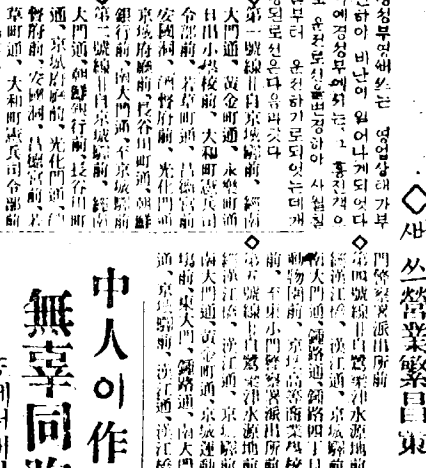 ◇쌔쓰營業繁昌策
경성부영쌔쓰는 영업상태가부
진하야 비난이 일어나게되엇다
여경성부에서는、그 흥진책으
로 운전로선을변경하야 사월칠
부터 운전하기로되엇는데개
정된로선은다음과갓다
◇第一號線 自京城驛前、經南
大門通、黃金町通、永樂町通
日出小學校前、大和町憲兵司
令部前、若草町通、昌德宮前
安國洞、總督府前、光化門通
京城府廳前、長谷川町通、朝鮮
銀行前、南大門通、至京城驛前
◇第二號線 自京城驛前、經南
大門通、朝鮮銀行前、長谷川町
通、京城府廳前、光化門通、
督府前、安國洞、昌德宮前、若
草町通、大和町憲兵司令部前
門警察署派出所前
◇第四號線 自鷺梁津水源地前
經漢江橋、漢江通、京城驛前
南大門通、鍾路通、鍾路四丁
動物園前、京城高等商業學校
前、至東小門警察署派出所前
◇第五號線 自鷺梁津水源地前
經漢江橋、漢江通、京城驛前
南大門通、黃金町通、京城運動
場前、東大門、鍾路通、南大門
通、京城驛前、漢江通、漢江橋
中人이作
無辜同